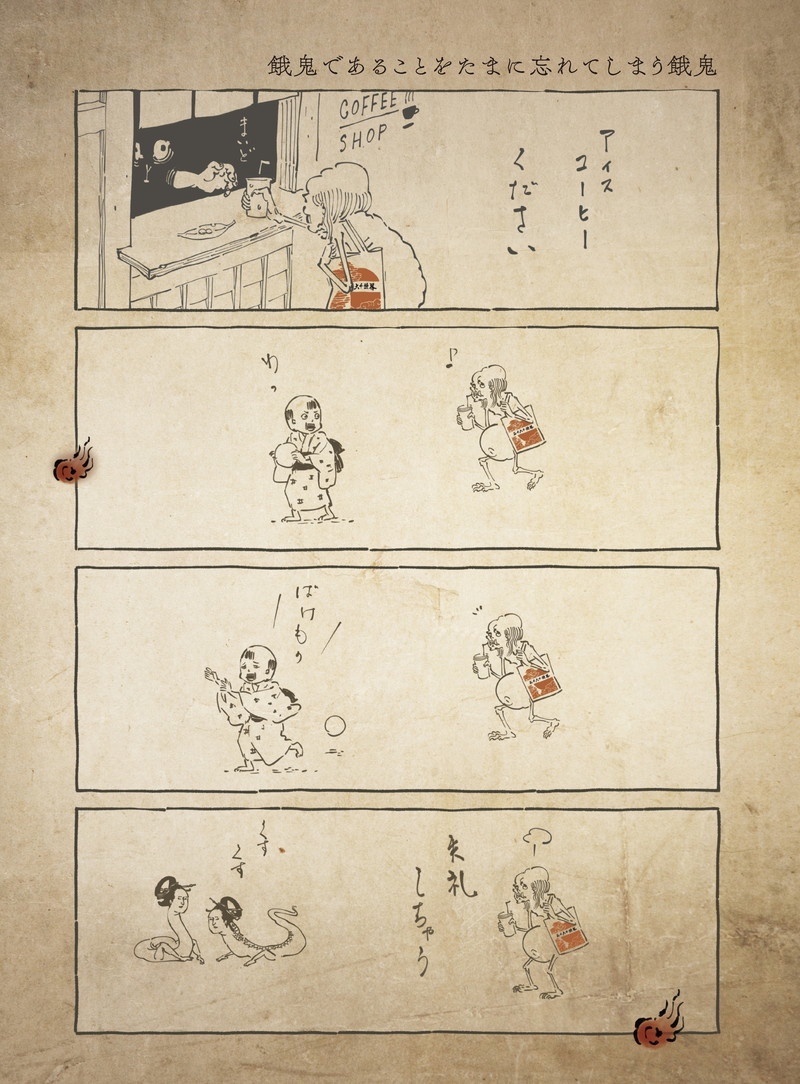 餓鬼であることをたまに忘れてしまう餓鬼
アイス
コーヒー
ください
COFFEE
SHOP
まいど
♪
わっ
ばけもの
失礼
しちゃう
くす
くす